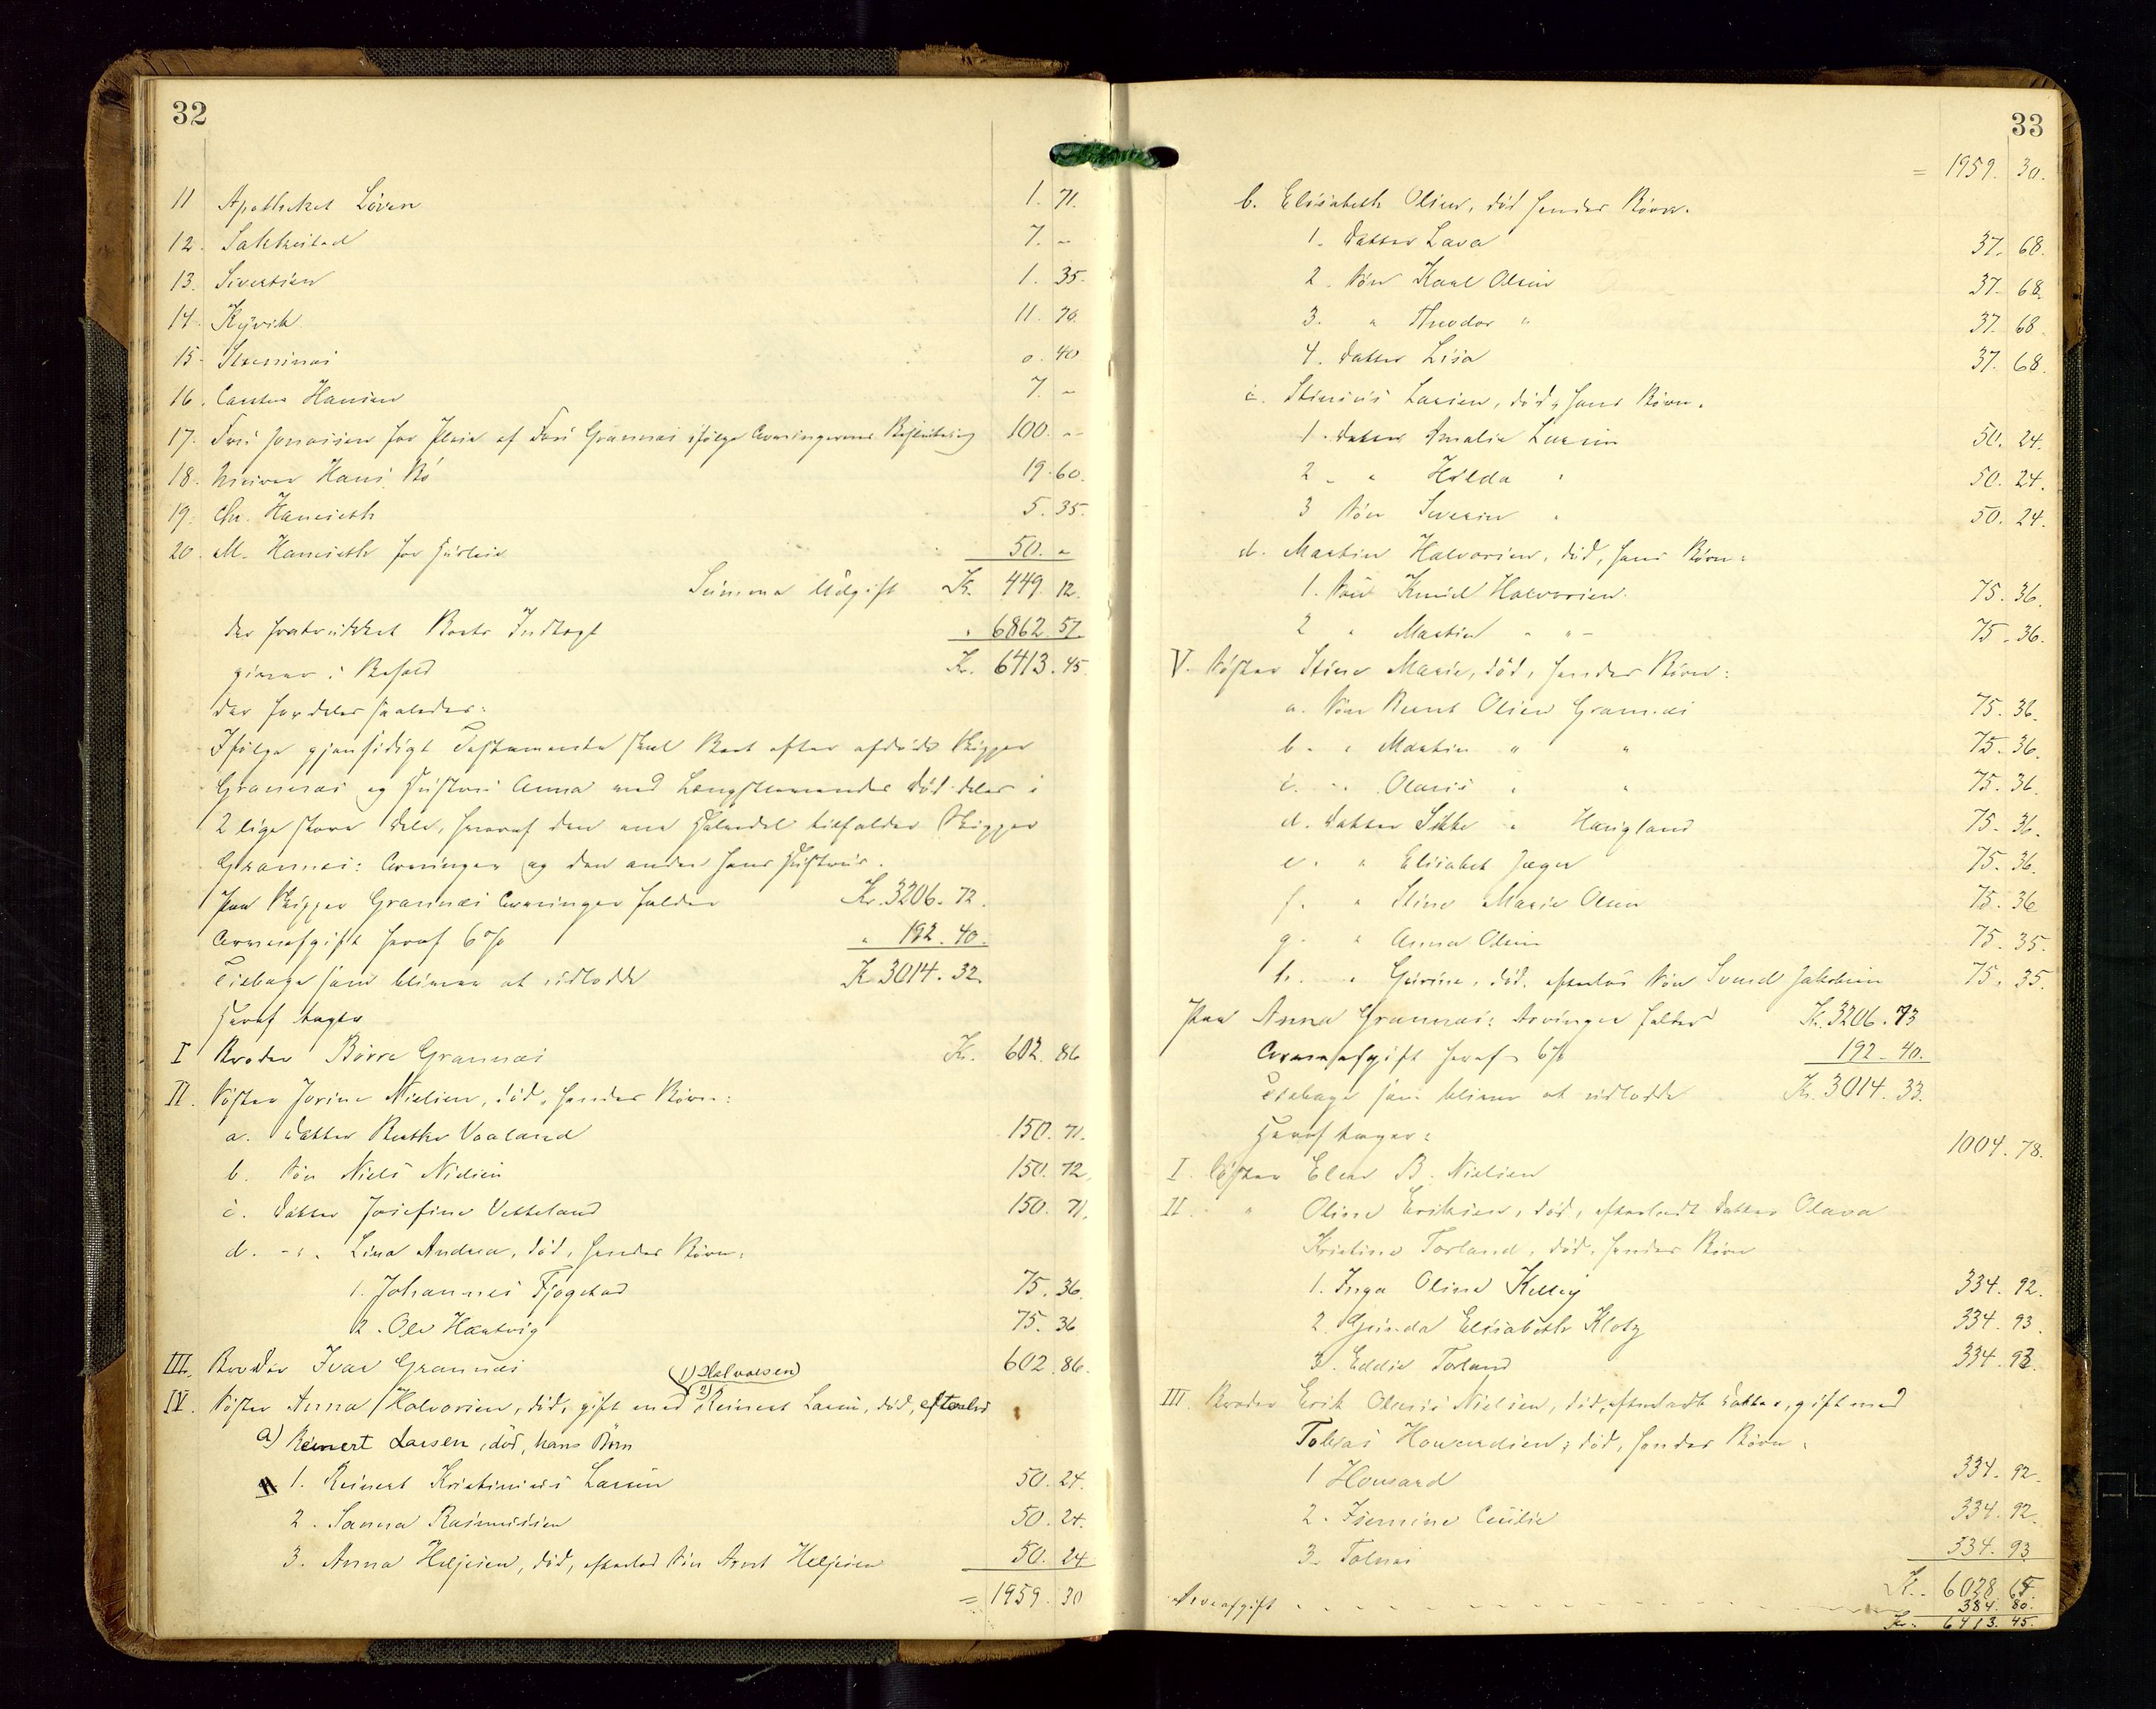 32
11 Apotheket Löven 1. 71.
12. Sakkestad 7. -
13. Sivertsen 1. 35.
14. Kyvik 11. 70.
15. 0. 40
16. Hansen 7. -
17. Jonassen for Pleie af Grannæs ifølge Arvingernes Beslutning 100. -
18. Hans. Bö 19. 60.
19. Chr. Hanseth 5. 35.
20. M. Hanseth for Husleie 50. -
Summa Udgift Kr. 449. 12.
der fratrukket Boets Indtægt " 6862. 57.
giver i Behold Kr. 6413. 45.
der fordeles saaledes:
Ifølge gjensidigt Testamente skal Boet efter afdøde Skipper
Grannæs og Hustru Anna ved Længstlevendes Død deles i
2 lige store Dele, hvoraf den ene Halvdel tilfalder Skipper
Grannæs: Arvinger og den anden hans Hustrus.
Paa Skipper Grannæs Arvinger falder Kr. 3206. 72.
Arveafgift heraf 6% " 192. 40.
Tilbage som bliver at udlodde Kr. 3014. 32.
Heraf tager
I Broder Börre Grannæs Kr. 602. 86
II. Søster Jorine Nielsen, død, hendes Børn:
a. Datter Berthe Vaaland 150. 71.
b. Søn Niels Nielsen 150. 72.
c. Datter Josefine Vetteland 150. 71.
d. - " - Lina Andrea, død, hendes Børn:
1. Johannes Fjogstad 75. 36.
2. Ole Hartvig 75. 36
III. Broder Ivar Grannæs 602. 86.
1) Halvorsen)
IV. Søster Anna Halvorsen, død, gift med 2) Reinert Larsen, død, efterlod
a) Reinert Larsen, död, hans Börn
1. Reinert Kristinius Larsen 50. 24.
2. Sanna Rasmussen 50. 24.
3. Anna Heljesen, død, efterlod Søn Arnt Heljesen 50. 24
= 1959. 30
33
= 1959. 30.
b. Elisabeth Olsen, død hendes Børn.
1. Datter Lava 37. 68.
2. Søn Karl Olsen 37. 68.
3. " Theodor " 37. 68.
4. Datter Lisa 37. 68.
c. Larsen, død, hans Børn.
1. Datter Amalie Larsen 50. 24.
2. " Hilda " 50. 24.
3 Søn Severin " 50. 24.
d. Martin Halvorsen, død, hans Børn:
1. Søn Knud Halvorsen. 75. 36.
2 " Martin - " - 75. 36.
V. Søster Stine Marie, død, hendes Børn:
a. Søn Bernt Olsen Grannæs 75. 36.
b. " Martin " " 75. 36.
c. " Olaus " " 75. 36.
d. Datter Sikke " Haugland 75. 36.
e. " Elisabet Jæger 75. 36.
f. " Stine Marie Olsen 75. 36
g. " Anna Olsen 75. 35.
h. " Gurine, død, efterlod Søn Svend Jakobsen 75. 35.
Paa Anna Grannæs: Arvinger falder Kr. 3206. 73
Arveafgift heraf 6% 192. 40.
Tilbage som bliver at udlodde Kr. 3014. 33.
Heraf tager:
I. Søster Elen B. Nielsen 1004. 78.
II. " Oline Eriksen, død, efterladt Datter Olava
Kristine Torland, død, hendes Børn
1. Inga Oline Kelley 334. 92.
2. Gunda Elisabeth Klotz 334. 93.
3. Eddie Torland 334. 93.
III. Broder Erik Olaus Nielsen, død, efterladt Datter, gift med
Tobias Housardsen; død, hendes Børn:
1 Housard 334. 92.
2. Cecilie 334. 92.
3. Tobias 334. 93
Kr. 6028. 65.
Arveafgift 384. 80.
Kr. 6413. 45.